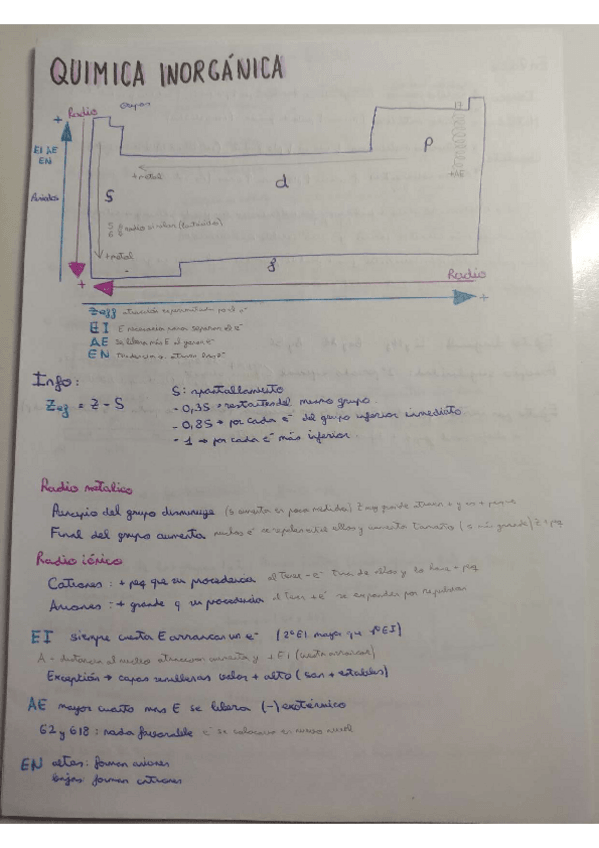 QUIMICA INORGÁNICA
Grupos
+ Radio
EI AE
EN
Aniones
p
+AE
+metal
d
S
radio similar (lantánido)
+metal
f
Radio
+
+
Zeff atracción
EI E necesaria para separar un e-
AE se libera más E al ganar e-
EN Tendencia a atraer los e-
Info:
Zeff = Z - S
S: apantallamiento
- 0,35 = restantes del mismo grupo.
- 0,85 → por cada e- del grupo inferior inmediato
- 1 → por cada e- más inferior.
Radio metalico
Principio del grupo disminuye (S aumenta en poca medida) Z muy grande atraen + y es + peque
Final del grupo aumenta muchos e- se repelen entre ellos y aumenta tamaño (S más grande) Z + peq
Radio iónico
Cationes: + peq que su procedencia al tener - e- tira de ellos y lo hace + peq
Aniones: + grande q su procedencia al tener + e- se expanden por repulsion
EI siempre cuesta E arrancar un e- (2ºEI mayor que 1ºEI)
A - distancia al nucleo atraccion aumenta y + EI (cuesta arrancar)
Excepción → capas semillenas valor + alto (son + estables)
AE mayor cuanto mas E se libera (-) exotérmico
G2 y G18: nada favorable e- se colocan en nuevo nivel
EN altas: forman aniones
bajas forman cationes